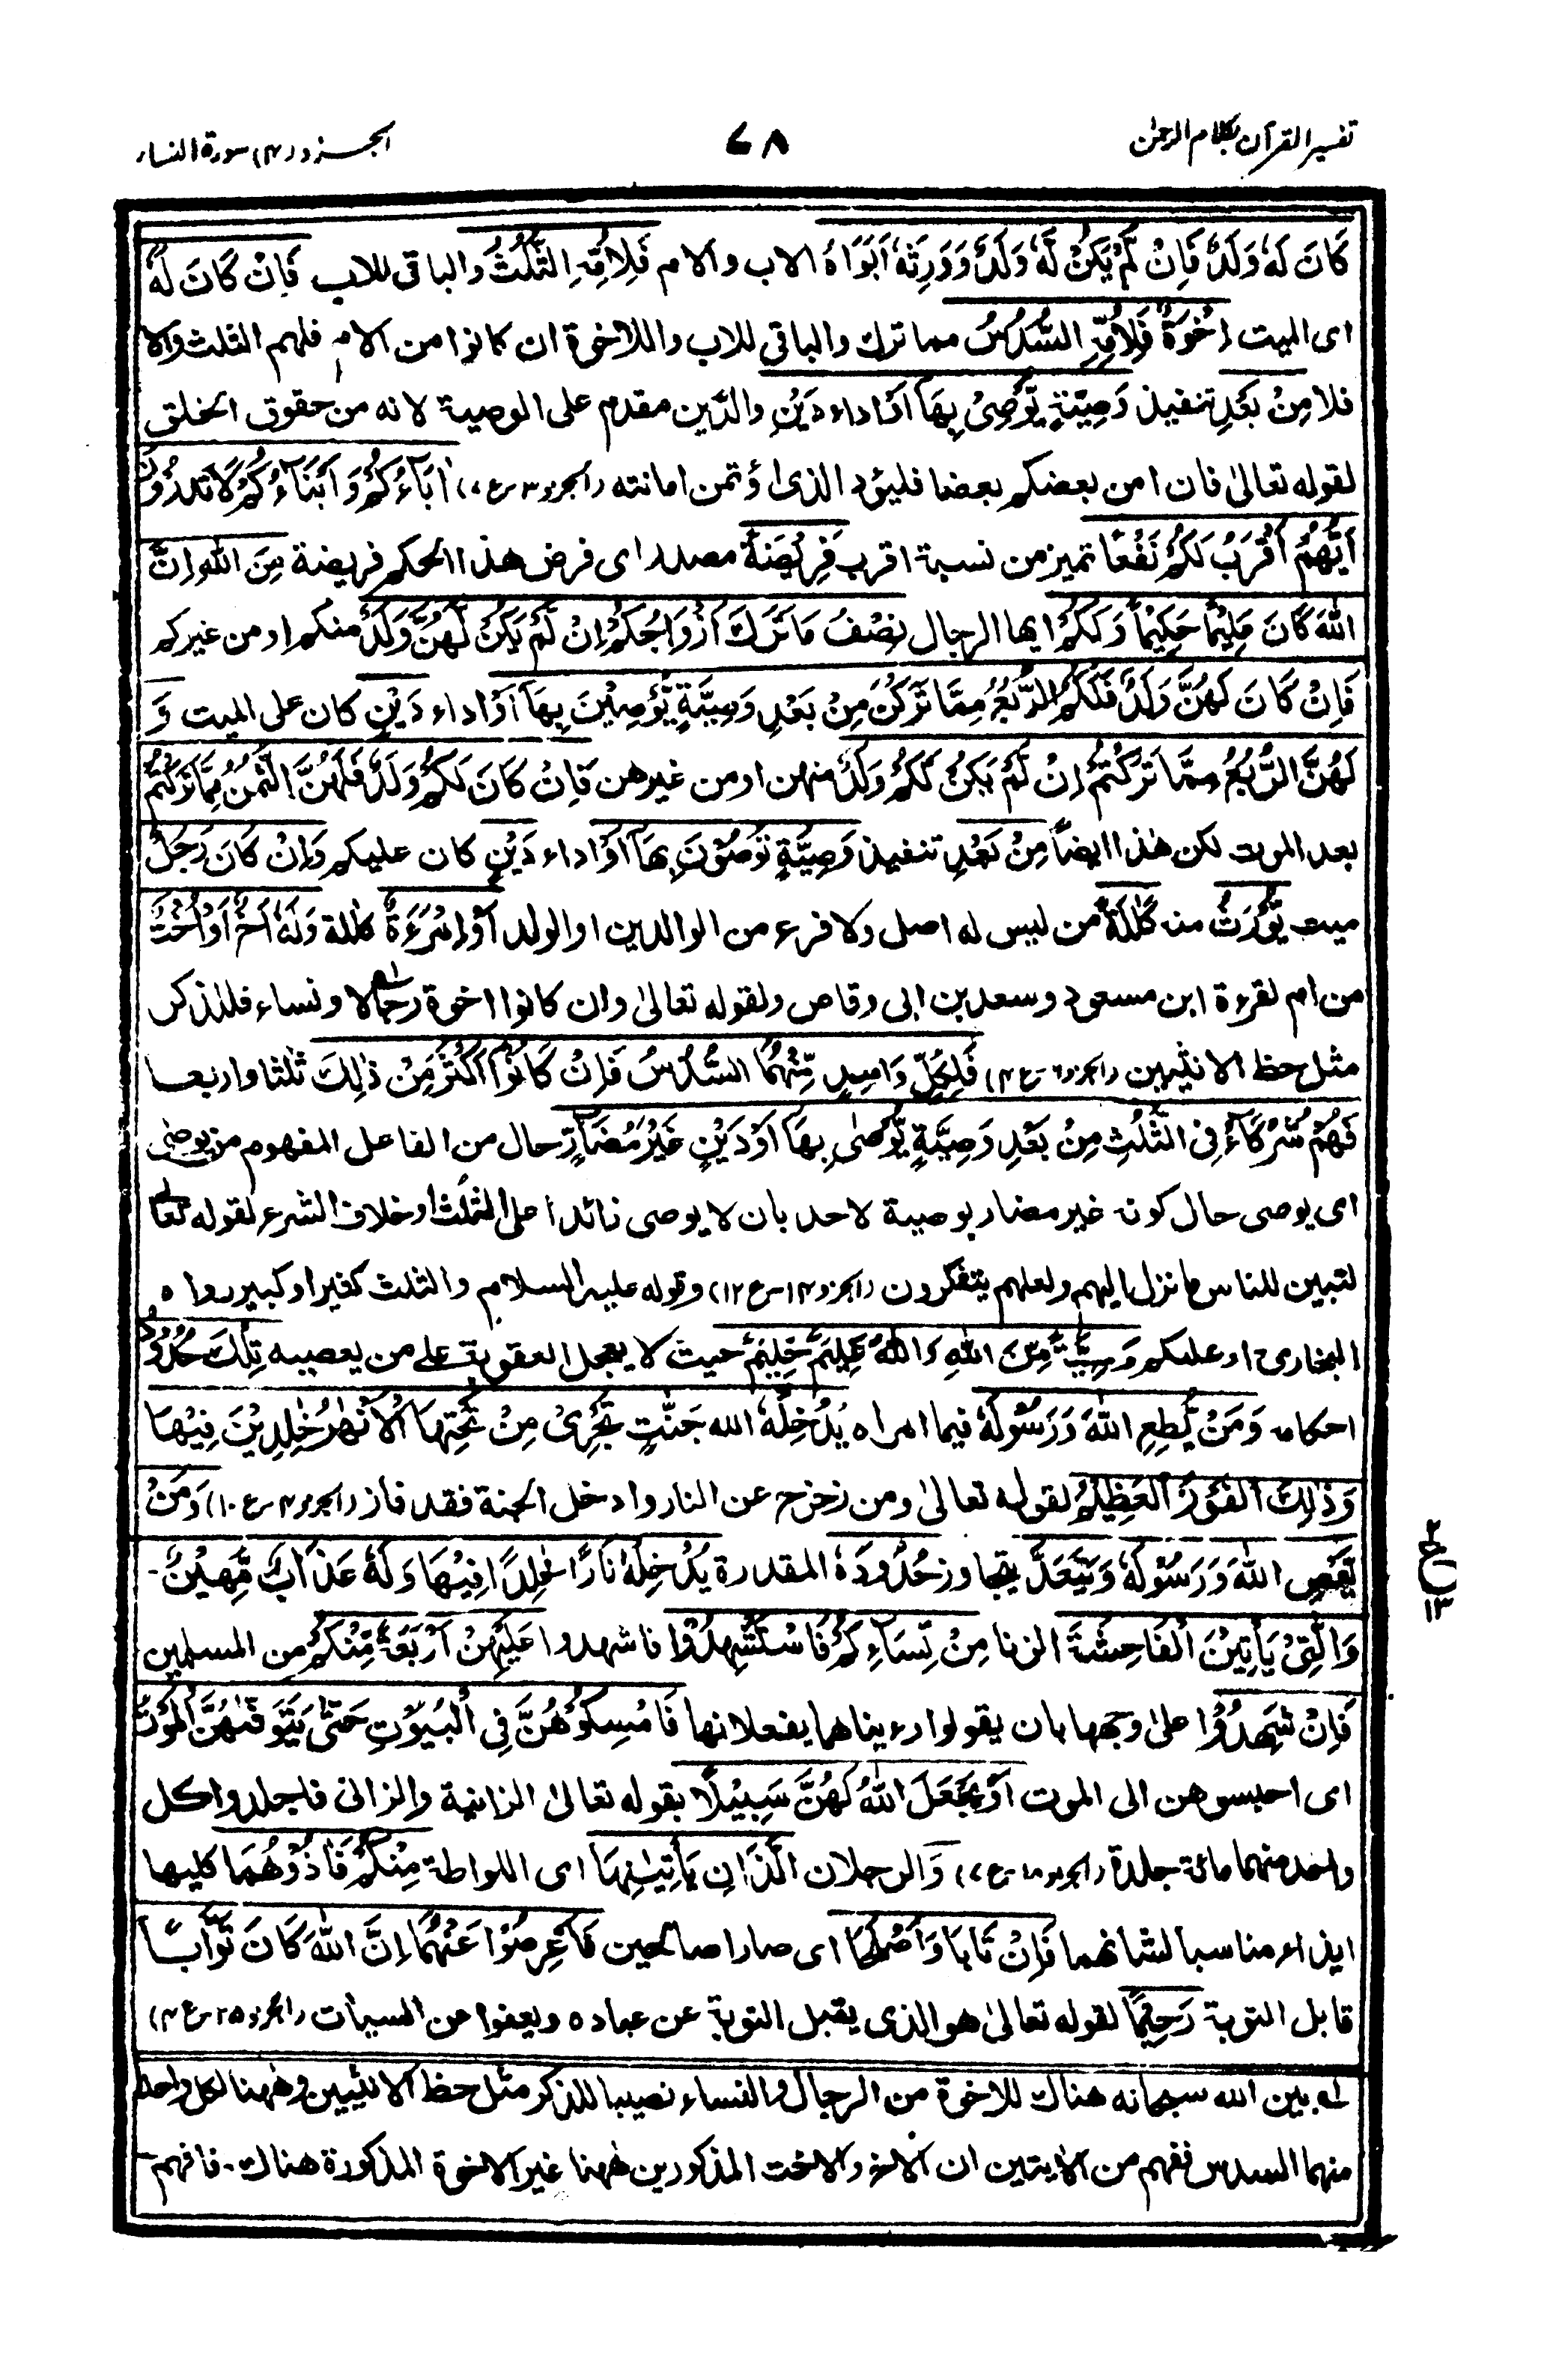 تفسير القرآن بكلام الرحمٰن
٧٨
الجزء (٤) سورة النساء
كَانَ لَهٗ وَلَدٌ فَاِنْ لَّمْ يَكُنْ لَّهٗ وَلَدٌ وَّوَرِثَهٗ اَبَوَاهُ الاب والام فَلِاُمِّهِ الثُّلُثُ والباقى للاب فَاِنْ كَانَ لَهٗ
اى الميت اِخْوَةٌ فَلِاُمِّهِ السُّدُسُ مما ترك والباقى للاب واللاخوة ان كانوا من الام فلهم الثلث والا
فلا مِنْ بَعْدِ تنفيذ وَصِيَّةٍ يُّوْصِىْ بِهَآ اَوْ اداء دَيْنٍ والدَّين مقدم على الوصية لانه من حقوق الخلق
لقوله تعالىٰ فان امن بعضكم بعضا فليؤد الذى اؤتمن امانته (الجزو ٣-ع ٧) اٰبَآءُكُمْ وَاَبْنَآءُكُمْ لَا تَدْرُوْنَ
اَيُّهُمْ اَقْرَبُ لَكُمْ نَفْعًا تميز من نسبة اقرب فَرِيْضَةً مصدر اى فرض هذا الحكم فريضة مِّنَ اللهِ اِنَّ
اللهَ كَانَ عَلِيْمًا حَكِيْمًا وَلَكُمْ ايها الرجال نِصْفُ مَا تَرَكَ اَزْوَاجُكُمْ اِنْ لَّمْ يَكُنْ لَّهُنَّ وَلَدٌ منكم او من غيركم
فَاِنْ كَانَ لَهُنَّ وَلَدٌ فَلَكُمُ الرُّبُعُ مِمَّا تَرَكْنَ مِنْ بَعْدِ وَصِيَّةٍ يُّوْصِيْنَ بِهَآ اَوْ اداء دَيْنٍ كان على الميت وَ
لَهُنَّ الرُّبُعُ مِمَّا تَرَكْتُمْ اِنْ لَّمْ يَكُنْ لَّكُمْ وَلَدٌ منهن او من غيرهن فَاِنْ كَانَ لَكُمْ وَلَدٌ فَلَهُنَّ الثُّمُنُ مِمَّا تَرَكْتُمْ
بعد الموت لكن هٰذا ايضاً مِنْ بَعْدِ تنفيذ وَصِيَّةٍ تُوْصُوْنَ بِهَآ اَوْ اداء دَيْنٍ كان عليكم وَاِنْ كَانَ رَجُلٌ
ميت يُّوْرَثُ منه كَلٰلَةً من ليس له اصل ولا فرع من الوالدين او الولد اَوِ امْرَءَةٌ كلٰلة وَلَهٗٓ اَخٌ اَوْ اُخْتٌ
من ام لقرءة ابن مسعود وسعد بن ابى وقاص ولقوله تعالىٰ وان كانوا اخوة رجالا ونساء فللذكر
مثل حظ الانثيين (الجزو ٦-ع ٤) فَلِكُلِّ وَاحِدٍ مِّنْهُمَا السُّدُسُ فَاِنْ كَانُوْٓا اَكْثَرَ مِنْ ذٰلِكَ ثلٰثا واربعا
فَهُمْ شُرَكَآءُ فِى الثُّلُثِ مِنْ بَعْدِ وَصِيَّةٍ يُّوْصٰى بِهَآ اَوْ دَيْنٍ غَيْرَ مُضَآرٍّ حال من الفاعل المفهوم من يوصٰى
اى يوصى حال كونه غير مضار بوصية لاحد بان لا يوصى زائدا على الثلث او خلاف الشرع لقوله تعالىٰ
لتبين للناس ما نزل اليهم ولعلهم يتفكرون (الجزو ١٤-ع ١٢) وقوله عليه السلام والثلث كثير او كبير رواه
البخارى او عليكم وَصِيَّةً مِّنَ اللهِ وَاللهُ عَلِيْمٌ حَلِيْمٌ حيث لا يعجل العقوبة على من يعصيه تِلْكَ حُدُوْدُ
احكامه وَمَنْ يُّطِعِ اللهَ وَرَسُوْلَهٗ فيما امراه يُدْخِلْهُ الله جَنّٰتٍ تَجْرِىْ مِنْ تَحْتِهَا الْاَنْهٰرُ خٰلِدِيْنَ فِيْهَا
وَذٰلِكَ الْفَوْزُ الْعَظِيْمُ لقوله تعالىٰ ومن زحزح عن النار وادخل الجنة فقد فاز (الجزو ٤-ع ١٠) وَمَنْ
يَّعْصِ اللهَ وَرَسُوْلَهٗ وَيَتَعَدَّ يتجاوز حُدُوْدَهٗ المقدرة يُدْخِلْهُ نَارًا خٰلِدًا فِيْهَا وَلَهٗ عَذَابٌ مُّهِيْنٌ-
ع ١٣
وَالّٰتِىْ يَأْتِيْنَ الْفَاحِشَةَ الزنا مِنْ نِّسَآءِكُمْ فَاسْتَشْهِدُوْا فاشهدوا عَلَيْهِنَّ اَرْبَعَةً مِّنْكُمْ من المسلمين
فَاِنْ شَهِدُوْا علىٰ وجهها بان يقولوا رءيناهما يفعلانها فَاَمْسِكُوْهُنَّ فِى الْبُيُوْتِ حَتّٰى يَتَوَفّٰهُنَّ الْمَوْتُ
اى احبسوهن الى الموت اَوْ يَجْعَلَ اللهُ لَهُنَّ سَبِيْلًا بقوله تعالىٰ الزانية والزانى فاجلدوا كل
واحد منهما مائة جلدة (الجزو ١٨-ع ٧) وَالرجلان الَّذَانِ يَأْتِيٰنِهَا اى اللواطة مِنْكُمْ فَاٰذُوْهُمَا كليهما
ايذاء مناسبا لشانهما فَاِنْ تَابَا وَاَصْلَحَا اى صارا صالحين فَاَعْرِضُوْا عَنْهُمَا اِنَّ اللهَ كَانَ تَوَّابًا
قابل التوبة رَحِيْمًا لقوله تعالىٰ هو الذى يقبل التوبة عن عباده ويعفوا عن السيات (الجزو ٢٥-ع ٤)
لـه بين الله سبحانه هناك للاخوة من الرجال والنساء نصيبا للذكر مثل حظ الانثيين وهٰهنا لكل واحد
منهما السدس ففهم من الايتين ان الاخ والاخت المذكورين هٰهنا غير الاخوة المذكورة هناك- فافهم-